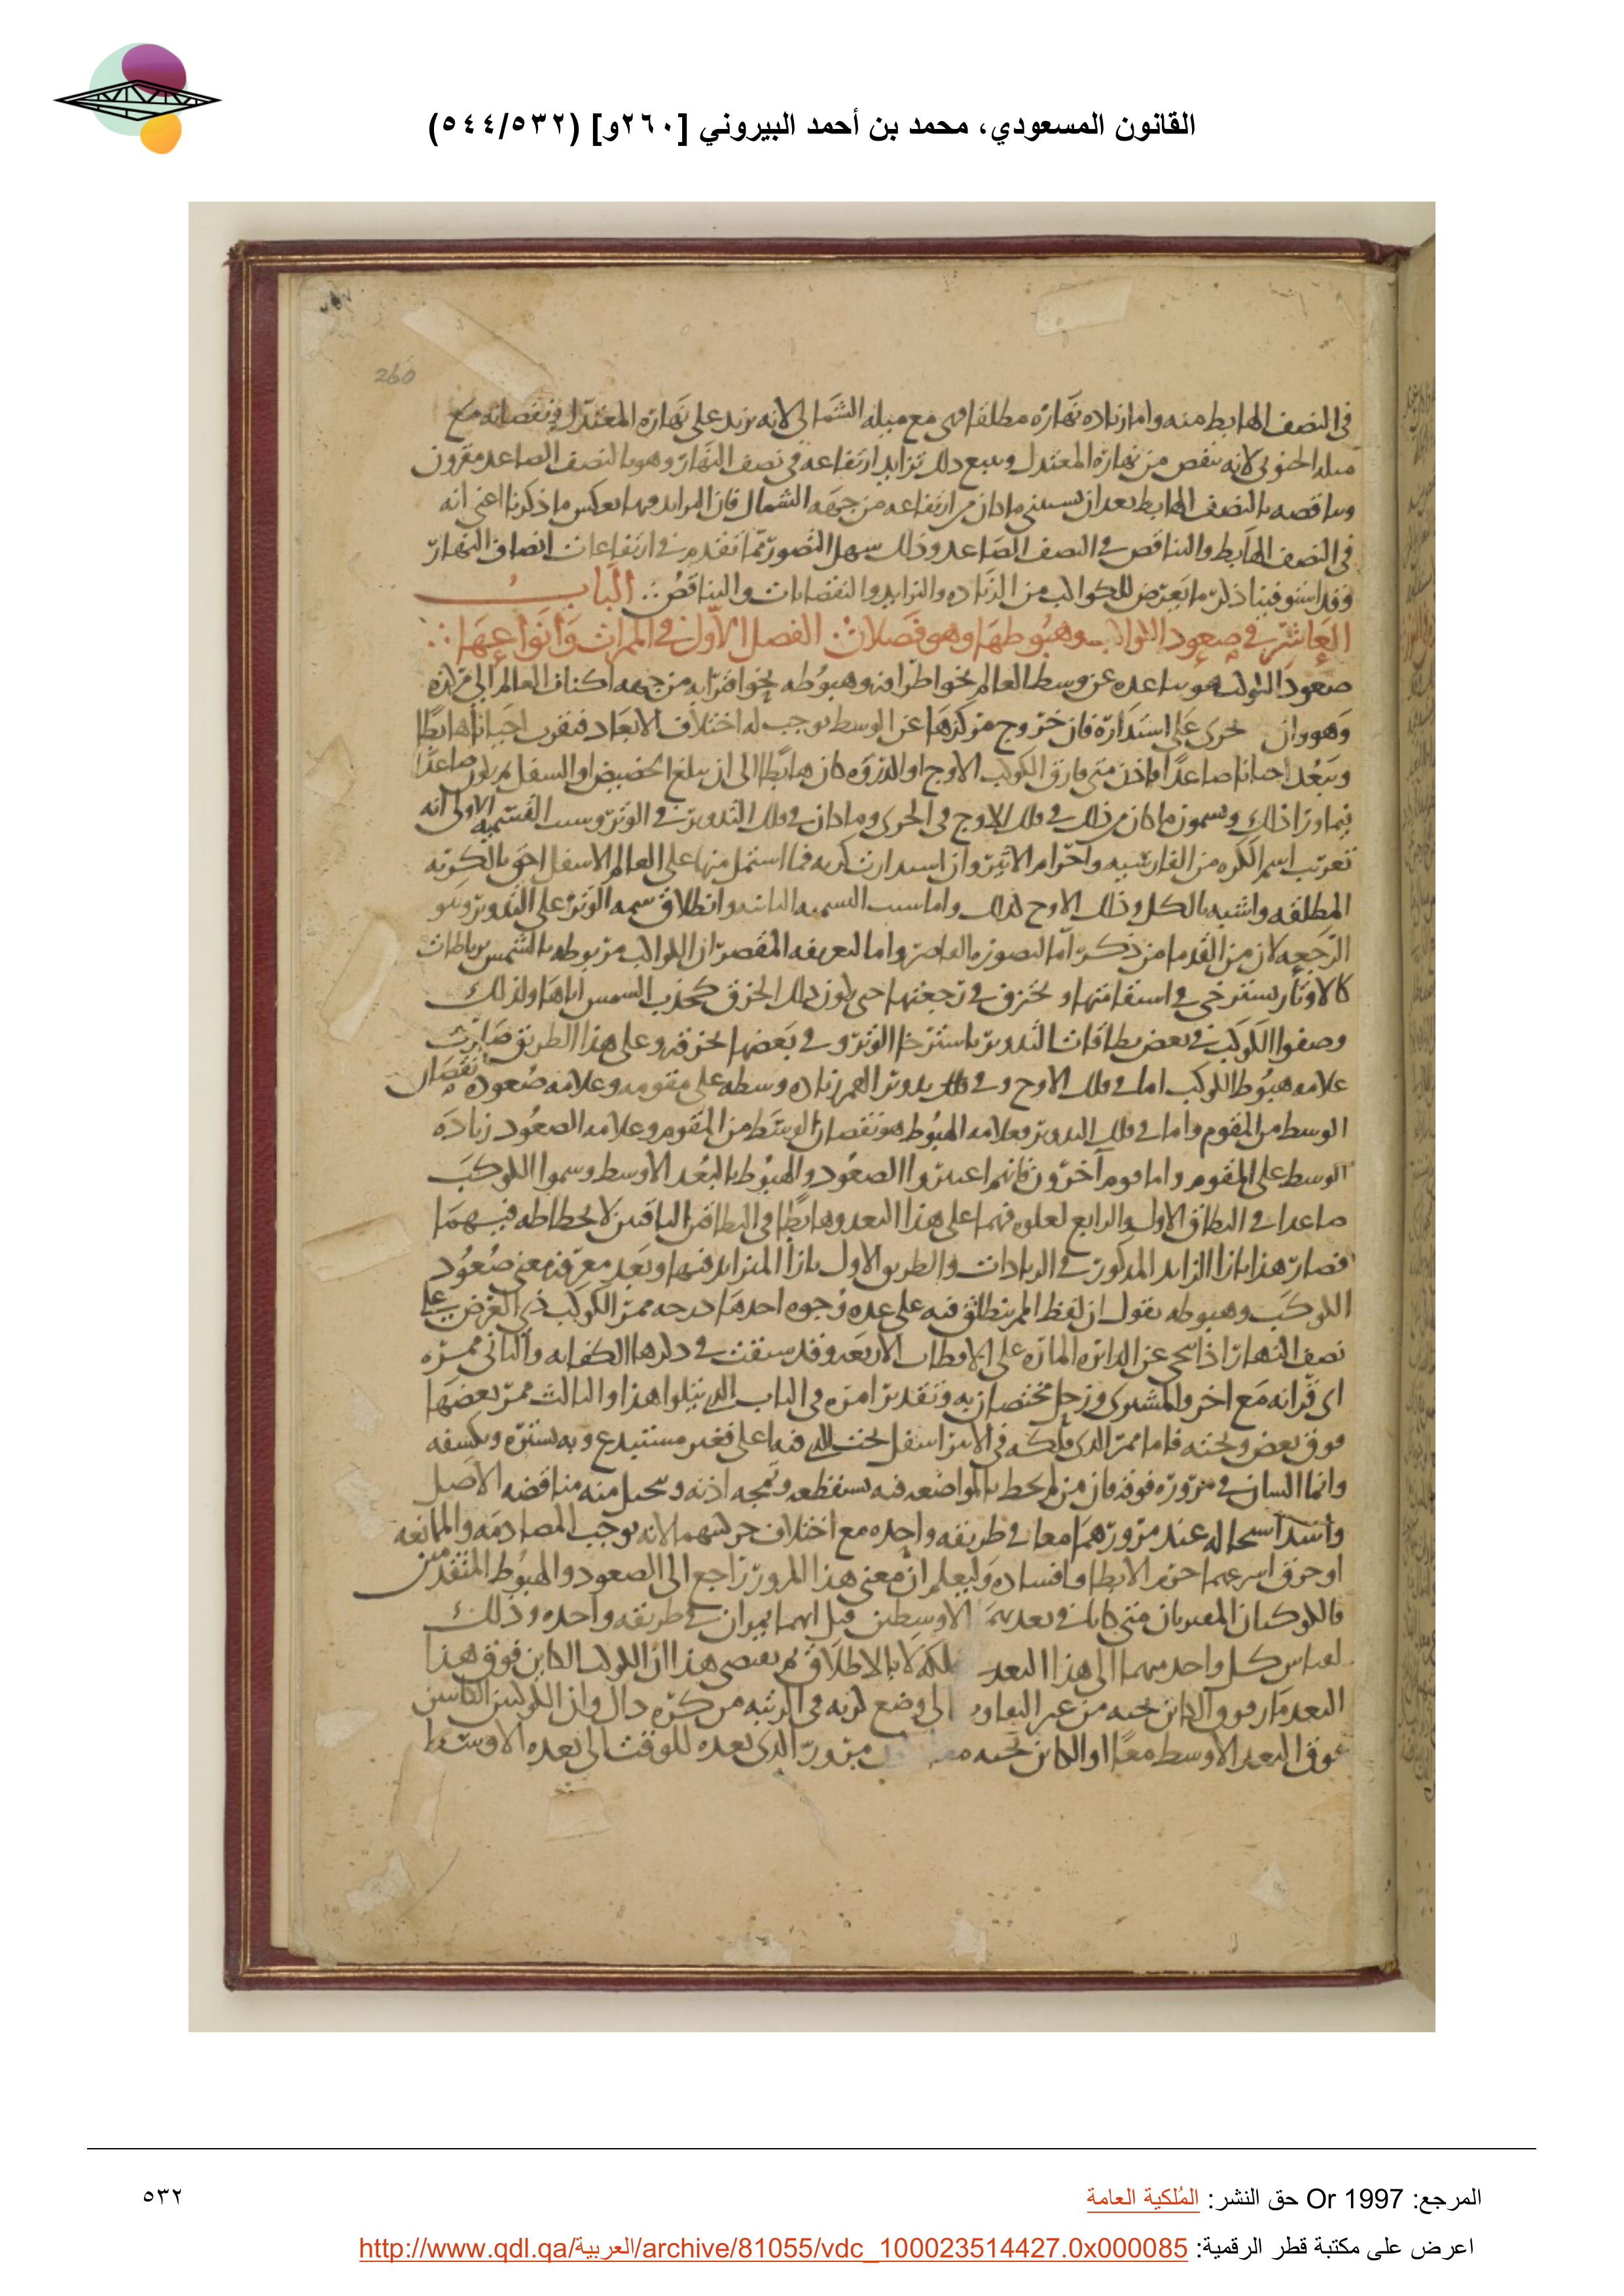 القانون المسعودي، محمد بن أحمد البيروني [٢٦٠و] (٥٤٤/٥٣٢)
260
في النصف الهابط منه واما زياده نهاره مطلقا فهي مع ميله الشمالي لانه يزيد على نهاره المعتدل ونقصانه مع
ميله الجنوبي لانه ينقص من نهاره المعتدل ويتبع ذلك تزايد ارتفاعه في نصف النهار وهو بالنصف الصاعد مقرون
وتناقصه بالنصف الهابط بعد ان يستثنى ما كان من ارتفاعه من جهه الشمال فان التزايد فيها بعكس ما ذكرنا اعني انه
في النصف الهابط والتناقص في النصف الصاعد وذلك سهل التصور مما تقدم في ارتفاعات انصاف النهار
وقد استوفينا ذكر ما يعرض للكواكب من الزياده والتزايد والنقصانات والتناقص الباب
العاشر في صعود الكواكب وهبوطها وهو فصلان الفصل الاول في الممرات وانواعها
صعود الكوكب هو تباعده عن وسط العالم نحو اطرافه وهبوطه نحو اقترابه من جهه اكناف العالم الى مركزه
وهو وان جرى على استداره فان خروج مركزها عن الوسط يوجب له اختلاف الابعاد فيقرب احيانا هابطا
ويبعد احيانا صاعدا فاذن متى فارق الكوكب الاوج او الذروه كان هابطا الى ان يبلغ الحضيض او السفل ثم يكون صاعدا
فيما وراء ذلك ويسمون ما كان من ذلك في فلك الاوج في الجرى وما كان في فلك التدوير في الوتر وسبب التسميه الاولى انه
تعريب اسم الكره من الفارسيه واجرام الاثير وان استدارت كريه فما اشتمل منها على العالم الاسفل احق بالكريه
المطلقه واشبه بالكل وفلك الاوج كذلك واما سبب التسميه الثانيه وانطلاق سمه الوتر على التدوير وهو
الرجعه لان من القدما من ذكر اما لتصوره القاصر واما لتعريفه المقصر ان الكواكب مربوطه بالشمس برباطات
كالاوتار تسترخي في استقامتها وتحزق في رجعتها حتى يكون ذلك الحزق كجذب الشمس اياها ولذلك
وصفوا الكوكب في بعض نطاقات التدوير باسترخا الوتر وفي بعضها بحزقه وعلى هذا الطريق صارت
علامه هبوط الكوكب اما في فلك الاوج وفي فلك تدوير القمر زياده وسطه على مقومه وعلامه صعوده نقصان
الوسط من المقوم واما في فلك التدوير فعلامه الهبوط هو نقصان الوسط من المقوم وعلامه الصعود زياده
الوسط على المقوم واما قوم آخرون فانهم اعتبروا الصعود والهبوط بالبعد الاوسط وسموا الكوكب
صاعدا في النطاق الاول والرابع لعلوه فيهما على هذا البعد وهابطا في النطاقين الباقيين لانحطاطه فيهما
فصار هذا بازا الزايد المذكور في الزيادات والطريق الاول بازا المتزايد فيها وبعد معرفه معنى صعود
الكوكب وهبوطه نقول ان لفظ الممر ينطلق فيه على عده وجوه احدها درجه ممر الكوكب ذي العرض على
نصف النهار اذا تنحى عن الدائره الماره على الاقطاب الاربعه وقد سبقت في ذكرها الكفايه والثاني ممره
اى قرانه مع اخر والمشترى وزحل مختصان به وتقدير امره في الباب الذي يتلوا هذا والثالث ممر بعضها
فوق بعض وتحته فاما ممر الذي فلكه في الاثير اسفل تحت الذي فيه اعلى فغير مستبدع وبه يستره ويكسفه
وانما الشان في مروره فوقه فان من لم يحط بالمواضعه فيه يستفظعه وتمجه اذنه ويتخيل منه مناقضه الاصل
واشد استحاله عند مرورهما معا في طريقه واحده مع اختلاف حركتهما لانه يوجب المصادمه والممانعه
او خرق اسرعهما جرم الابطا وافساده وليعلم ان معنى هذا المرور راجع الى الصعود والهبوط المتقدمين
فالكوكبان المقترنان متى كانا في بعديهما الاوسطين قيل انهما يمران في طريقه واحده وذلك
لقياس كل واحد منهما الى هذا البعد لفلكه لا بالاطلاق ثم يقتضي هذا ان الكوكب الكاين فوق هذا
البعد مار فوق الكاين تحته من غير التفاوت الى وضع كريه في المرتبه من كره ذاك وان الكوكبين الكاينين
فوق البعد الاوسط معا او الكاين تحته معا الذي بعده للوقت الى بعده الاوسط
المرجع: Or 1997 حق النشر: المُلكية العامة
٥٣٢
اعرض على مكتبة قطر الرقمية: http://www.qdl.qa/العربية/archive/81055/vdc_100023514427.0x000085